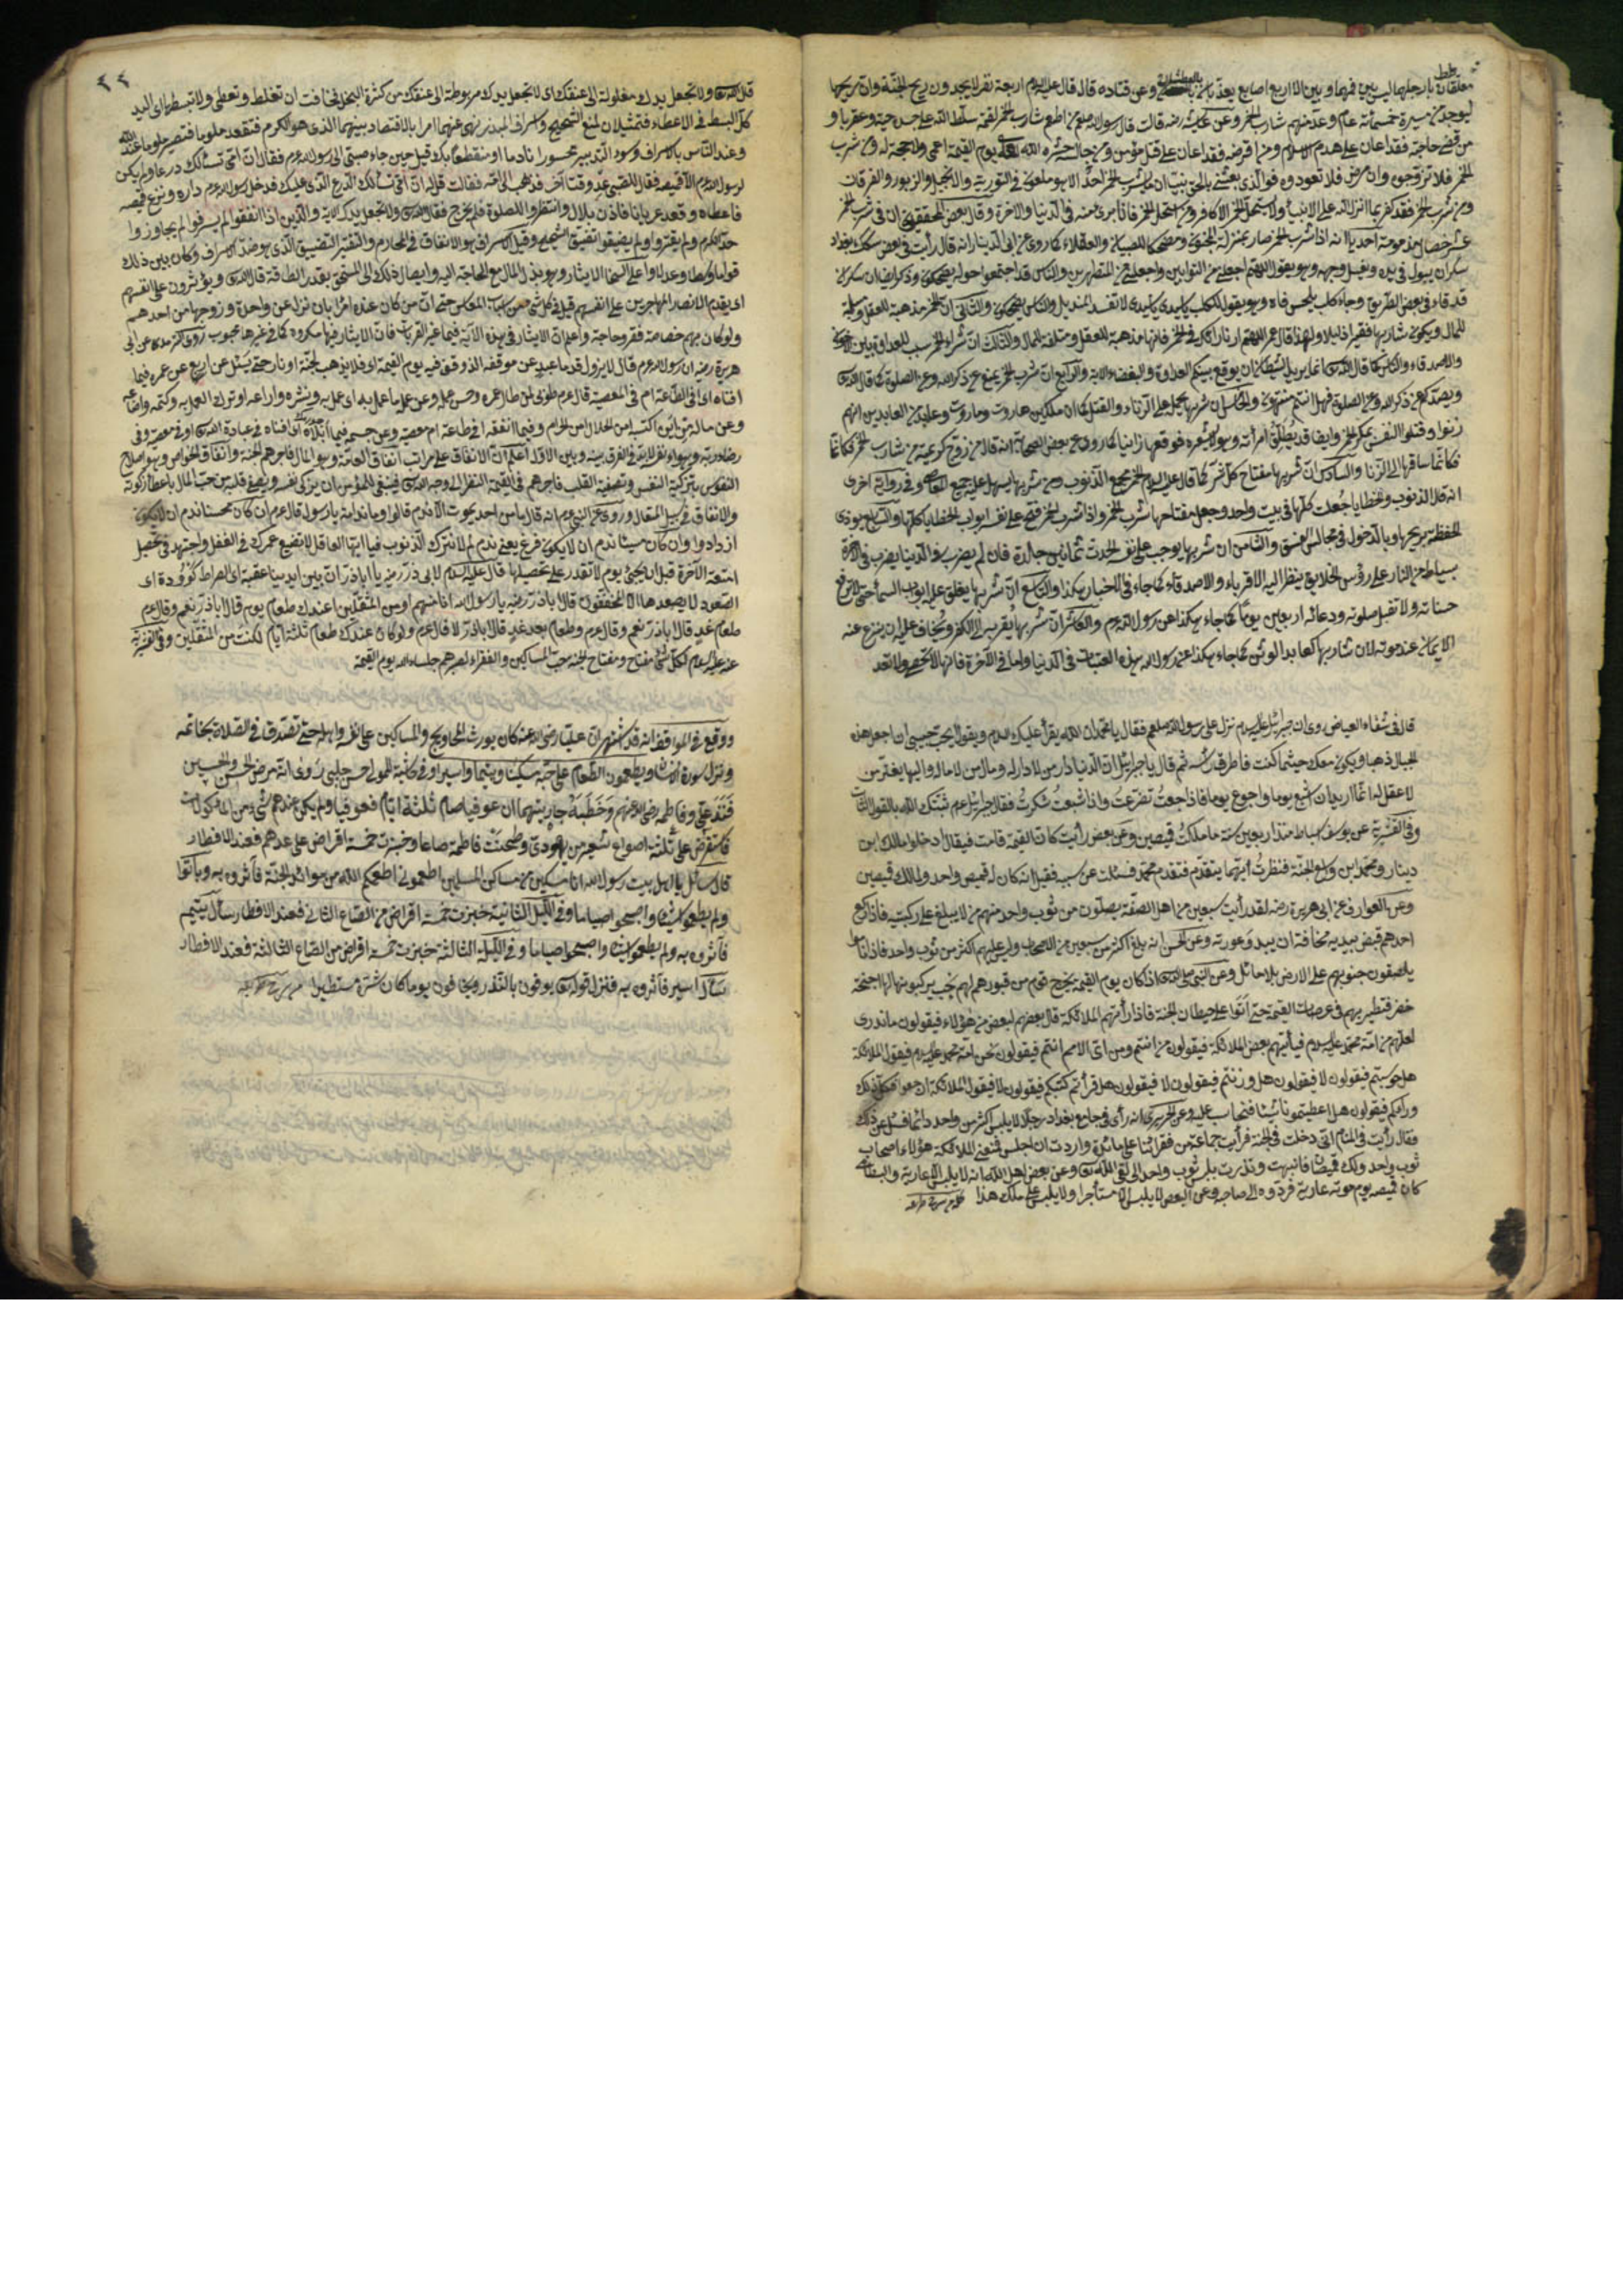 معلقان بارجلهما ليس بين فمهما وبين الا اربع اصابع يعذبان بالعطش وعن قتادة قال قال عليه السلام اربعة نفر لا يجدون ريح الجنة وان ريحها
ليوجد من مسيرة خمسمائة عام وعد منهم شارب الخمر وعن عائشة رضه قالت قال رسول الله صلعم من اطعم شارب الخمر لقمة سلط الله على جسده حية وعقربا و
من قضى حاجته فقد اعان على هدم الاسلام ومن اقرضه فقد اعان على قتل مؤمن ومن جالسه حشره الله يوم القيمة اعمى ولا حجة له ومن شرب
الخمر فلا تزوجوه وان مرض فلا تعودوه فوالذي بعثني بالحق نبيا ان ما يشرب الخمر احد الا هو ملعون في التورية والانجيل والزبور والفرقان
ومن شرب الخمر فقد كفر بما انزل الله على الانبياء ولا يستحل الخمر الا كافر ومن استحل الخمر فانا بريء منه في الدنيا والآخرة وقال بعض المحققين ان في شرب الخمر
عشر خصال مذمومة احديها انه اذا شرب الخمر صار بمنزلة المجنون ومضحكا للصبيان والعقلاء كما روى عن ابن ابي الدنيا انه قال رأيت في بعض سكك بغداد
سكران يبول في يده ويغسل وجهه وهو يقول اللهم اجعلني من التوابين واجعلني من المتطهرين والناس قد اجتمعوا حوله يضحكون وذكر ايضا ان سكران
قد قاء في بعض الطريق وجاء كلب يلحس فاه وهو يقول للكلب يا سيدي يا سيدي لا تفسد المنديل والناس يضحكون والثاني ان الخمر مذهبة للعقل ومتلفة
للمال ويكون شاربها فقيرا ذليلا ولهذا قال عمر اللهم ارنا رأيك في الخمر فانها مذهبة للعقل ومتلفة للمال والثالث ان شرب الخمر سبب للعداوة بين الاخوان
والاصدقاء والناس كما قال الله انما يريد الشيطان ان يوقع بينكم العداوة والبغضاء الاية والرابع ان شرب الخمر يمنع عن ذكر الله وعن الصلوة كما قال الله
ويصدكم عن ذكر الله وعن الصلوة فهل انتم منتهون والخامس ان شربها يحمل على الزناء والقتل كما ان ملكين هاروت وماروت وعابدا من العابدين انهم
زنوا وقتلوا النفس بسكر الخمر وايضا قد يطلق امرأته وهو لا يشعره فوقعها زانيا كما روى عن بعض الصحابة انه قال من زوج كريمته من شارب الخمر فكانما
فكانما ساقها الى الزنا والسادس ان شربها مفتاح كل شر كما قال عليه السلام الخمر مجمع الذنوب ومن شربها يسهل عليه جميع المعاصي وفي رواية اخرى
انه قال الذنوب والخطايا جعلت كلها في بيت واحد وجعل مفتاحها شرب الخمر واذا شرب الخمر فتح على نفسه ابواب الخطايا كلها والسابع يوذي
الحفظة بريحها وبالدخول في مجالس الفسق والثامن ان شربها يوجب على نفسه الحد ثمانين جلدة فان لم يضرب في الدنيا يضرب في الآخرة
بسياط من النار على رؤس الخلايق ينظر اليه الاقرباء والاصدقاء كما جاء في الاخبار هكذا والتاسع ان شربها يغلق عليه ابواب السماء حتى لا ترفع
حسناته ولا تقبل صلوته ودعائه اربعين يوما كما جاء هكذا عن رسول الله عم والعاشر ان شربها يقربه الى الكفر ويخاف عليه ان ينزع عنه
الايمان عند موته لان شاربها كعابد الوثن كما جاء هكذا عن رسول الله هذه العقبات في الدنيا واما في الآخرة فانها لا تحصى ولا تعد
قال في شفاء العياض روى ان جبرائيل عليه السلام نزل على رسول الله صلعم فقال يا محمد ان الله يقرأ عليك السلام ويقول اتحب حبيبي ان اجعل هذه
الجبال ذهبا ويكون معك حيثما كنت فاطرق رأسه ثم قال يا جبرائيل ان الدنيا دار من لا دار له ومال من لا مال له واليها يغتر من
لا عقل له انما اريد ان اشبع يوما واجوع يوما فاذا جعت تضرعت واذا شبعت شكرت فقال جبرائيل عم ثبتك الله بالقول الثابت
وفي القشيرية عن يوسف بن اسباط منذ اربعين سنة ما ملكت قميصين وعن بعض رأيت كان القيمة قامت فيقال ادخلوا مالك ابن
دينار ومحمد ابن واسع الجنة فنظرت ايهما يتقدم فتقدم محمد فسئلت عن سببه فقيل انه كان له قميص واحد ولمالك قميصين
وعن العوارف عن ابي هريرة رضه لقد رأيت سبعين من اهل الصفة يصلون من ثوب واحد منهم من لا يبلغ على ركبتيه فاذا ركع
احدهم قبض بيديه مخافة ان يبدو عورته وعن الحسن انه بلغ اكثر من سبعين من الاصحاب وليس عليهم اكثر من ثوب واحد فاذا ناموا
يلصقون جنوبهم على الارض بلا حائل وعن النبي صلى الله اذا كان يوم القيمة يخرج قوم من قبورهم لهم نجب يركبونها لها اجنحة
خضر فتطير بهم في عرصات القيمة حتى اتوا على حيطان الجنة فاذا رأتهم الملائكة قال بعضهم لبعض من هؤلاء فيقولون ما ندري
لعلهم من امة محمد عليه السلام فيأتيهم بعض الملائكة فيقولون من انتم ومن اي الامم انتم فيقولون نحن امة محمد عليه السلام فيقول الملائكة
هل حوسبتم فيقولون لا فيقولون هل وزنتم فيقولون لا فيقولون هل قرأتم كتبكم فيقولون لا فيقول الملائكة ارجعوا فكل ذلك
وراءكم فيقولون هل اعطيتمونا شيئا فنحاسب عليه وعن الحريري انه رأى في جامع بغداد رجلا لا يلبس اكثر من واحد دائما فسئل عن ذلك
فقال رأيت في المنام اني دخلت في الجنة فرأيت جماعة من فقرائنا على مائدة واردت ان اجلس فمنعني الملائكة هؤلاء اصحاب
ثوب واحد ولك قميصان فانتبهت ونذرت بلبس ثوب واحد الى لقى الله وعن بعض اهل الله انه لا يلبس الا عارية والبسطامي
كان قميصه يوم موته عارية فردوه الى صاحبه وعن البعض لا يلبس الا مستأجرا ولا يلبس على ملك هذا
٤٤
قال الله تعا ولا تجعل يدك مغلولة الى عنقك اى لا تجعل يدك مربوطة الى عنقك من كثرة البخل مخافت ان تغلط وتعطى ولا تبسطها اى اليد
كل البسط في الاعطاء فتمثيلان لمنع الشحيح واسراف المبذر نهى عنهما امرا بالاقتصاد بينهما الذي هو الكرم فتقعد ملوما فتصير ملوما عند الله
وعند الناس بالاسراف وسوء التدبير محسورا نادما او منقطعا بك قيل حين جاء صبي الى رسول الله عم فقال ان امي تسألك درعا ولم يكن
لرسول الله عم الا قميصه فقال للصبي عد وقتا آخر فذهب الى امه فقالت قل له ان امي تسألك الدرع الذي عليك فدخل رسول الله عم داره ونزع قميصه
فاعطاه وقعد عريانا فاذن بلال وانتظروا للصلوة فلم يخرج فقال الله ولا تجعل يدك الاية والذين اذا انفقوا لم يسرفوا لم يجاوزوا
حد الكرم ولم يقتروا ولم يضيقوا تضييق الشحيح وقيل الاسراف هو الانفاق في المحارم والتقتير التضييق الذي هو ضد الاسراف وكان بين ذلك
قواما وسطا وعدلا واعلى السخاء الايثار وهو بذل المال مع الحاجة اليه وايصال ذلك الى المستحق بقدر الطاقة قال الله ويؤثرون على انفسهم
اى يقدم الانصار المهاجرين على انفسهم قيل في كل شيء من اسباب المعاش حتى ان من كان عنده امرأتان نزل عن واحدة وزوجها من احدهم
ولو كان بهم خصاصة فقر وحاجة واعلم ان الايثار في هذه الآية فيما غير القربات فان الايثار فيها مكروه كما في غيرها محبوب روى الترمذي عن ابي
هريرة رضه ان رسول الله عم قال لا يزول قدما عبد عن موقفه الذي وقف فيه يوم القيمة اى فلا يذهب الجنة او نار حتى يسئل عن اربع عن عمره فيما
افناه اى في الطاعة ام في المعصية قال عم طوبى لمن طال عمره وحسن عمله وعن علمه ما عمل به اى عمل به ونشره واراعه او ترك العمل به وكتمه واضاعه
وعن ماله من اين اكتسبه امن الحلال ام من الحرام وفيما انفقه افي طاعة ام معصية وعن جسمه فيما ابلاه اى افناه في عبادة الله او في معصيته وفي
رضاء ربه وهواء نفسه لابد في الفرق بينه وبين الاول اعلم ان الانفاق على مراتب انفاق العامة وهو المال فاجرهم الجنة وانفاق الخواص وهو اصلاح
النفوس بتزكية النفس وتصفية القلب فاجرهم في القيمة النظر الى وجه الله فينبغي للمؤمن ان يزكي نفسه ويصفي قلبه من حب المال باعطاء زكوته
والانفاق في سبيل المتعال وروى عن النبي عم انه قال ما من احد يموت الا ندم قالوا وما ندامته يا رسول الله قال عم ان كان محسنا ندم ان لا يكون
ازداد وان كان مسيئا ندم ان لا يكون فرغ يعني ندم لم لا نترك الذنوب فيا ايها العاقل لا تضيع عمرك في الغفل واجتهد في تحصيل
امتعة الآخرة قبل ان يجئ يوم لا تقدر على تحصيلها قال عليه السلام لابي ذر رضه يا اباذر ان بين ايدينا عقبة اى الصراط كؤودة اى
الصعود لا يصعدها الا المخففون قال اباذر رضه يا رسول الله انا منهم او من المثقلين اعندك طعام يوم قال اباذر نعم وقال عم
طعام غد قال اباذر نعم وقال عم وطعام بعد غد قال اباذر لا قال عم ولو كان عندك طعام ثلثة ايام لكنت من المثقلين وفي القشيرية
عنه عليه السلام لكل شئ مفتاح ومفتاح الجنة حب المساكين والفقراء لصبرهم جلساء الله يوم القيمة
ووقع في المواقف انه قد اشتهر ان عليا رضى الله عنه كان يورث المحاويج والمساكين على نفسه واهله حتى تصدق في الصلاة بخاتمه
ونزل سورة الانسان ويطعمون الطعام على حبه مسكينا ويتيما واسيرا وفي حاشية للمولى حسن چلبي روى انه مرض الحسن والحسين
فنذر علي وفاطمة رضى الله عنهم وخطبة جاريتهما ان عوفيا صام ثلثة ايام فعوفيا ولم يكن عندهم شيء من المأكولات
فاستقرض علي ثلثة اصوع شعير من يهودي وطحنت فاطمة صاعا وخبزت خمسة اقراص على عددهم فعند الافطار
قال سائل يا اهل بيت رسول الله انا مسكين من مساكين المسلمين اطعموني اطعمكم الله من موائد الجنة فآثروه به وباتوا
ولم يطعموا شيئا واصبحوا صياما وفي الليل الثانية خبزت خمسة اقراص من الصاع الثاني فعند الافطار سأل يتيم
فآثروه به ولم يطعموا شيئا واصبحوا صياما وفي الليلة الثالثة خبزت خمسة اقراص من الصاع الثالثة فعند الافطار
سأل اسير فآثروه به فنزل قوله يوفون بالنذر ويخافون يوما كان شره مستطيرا